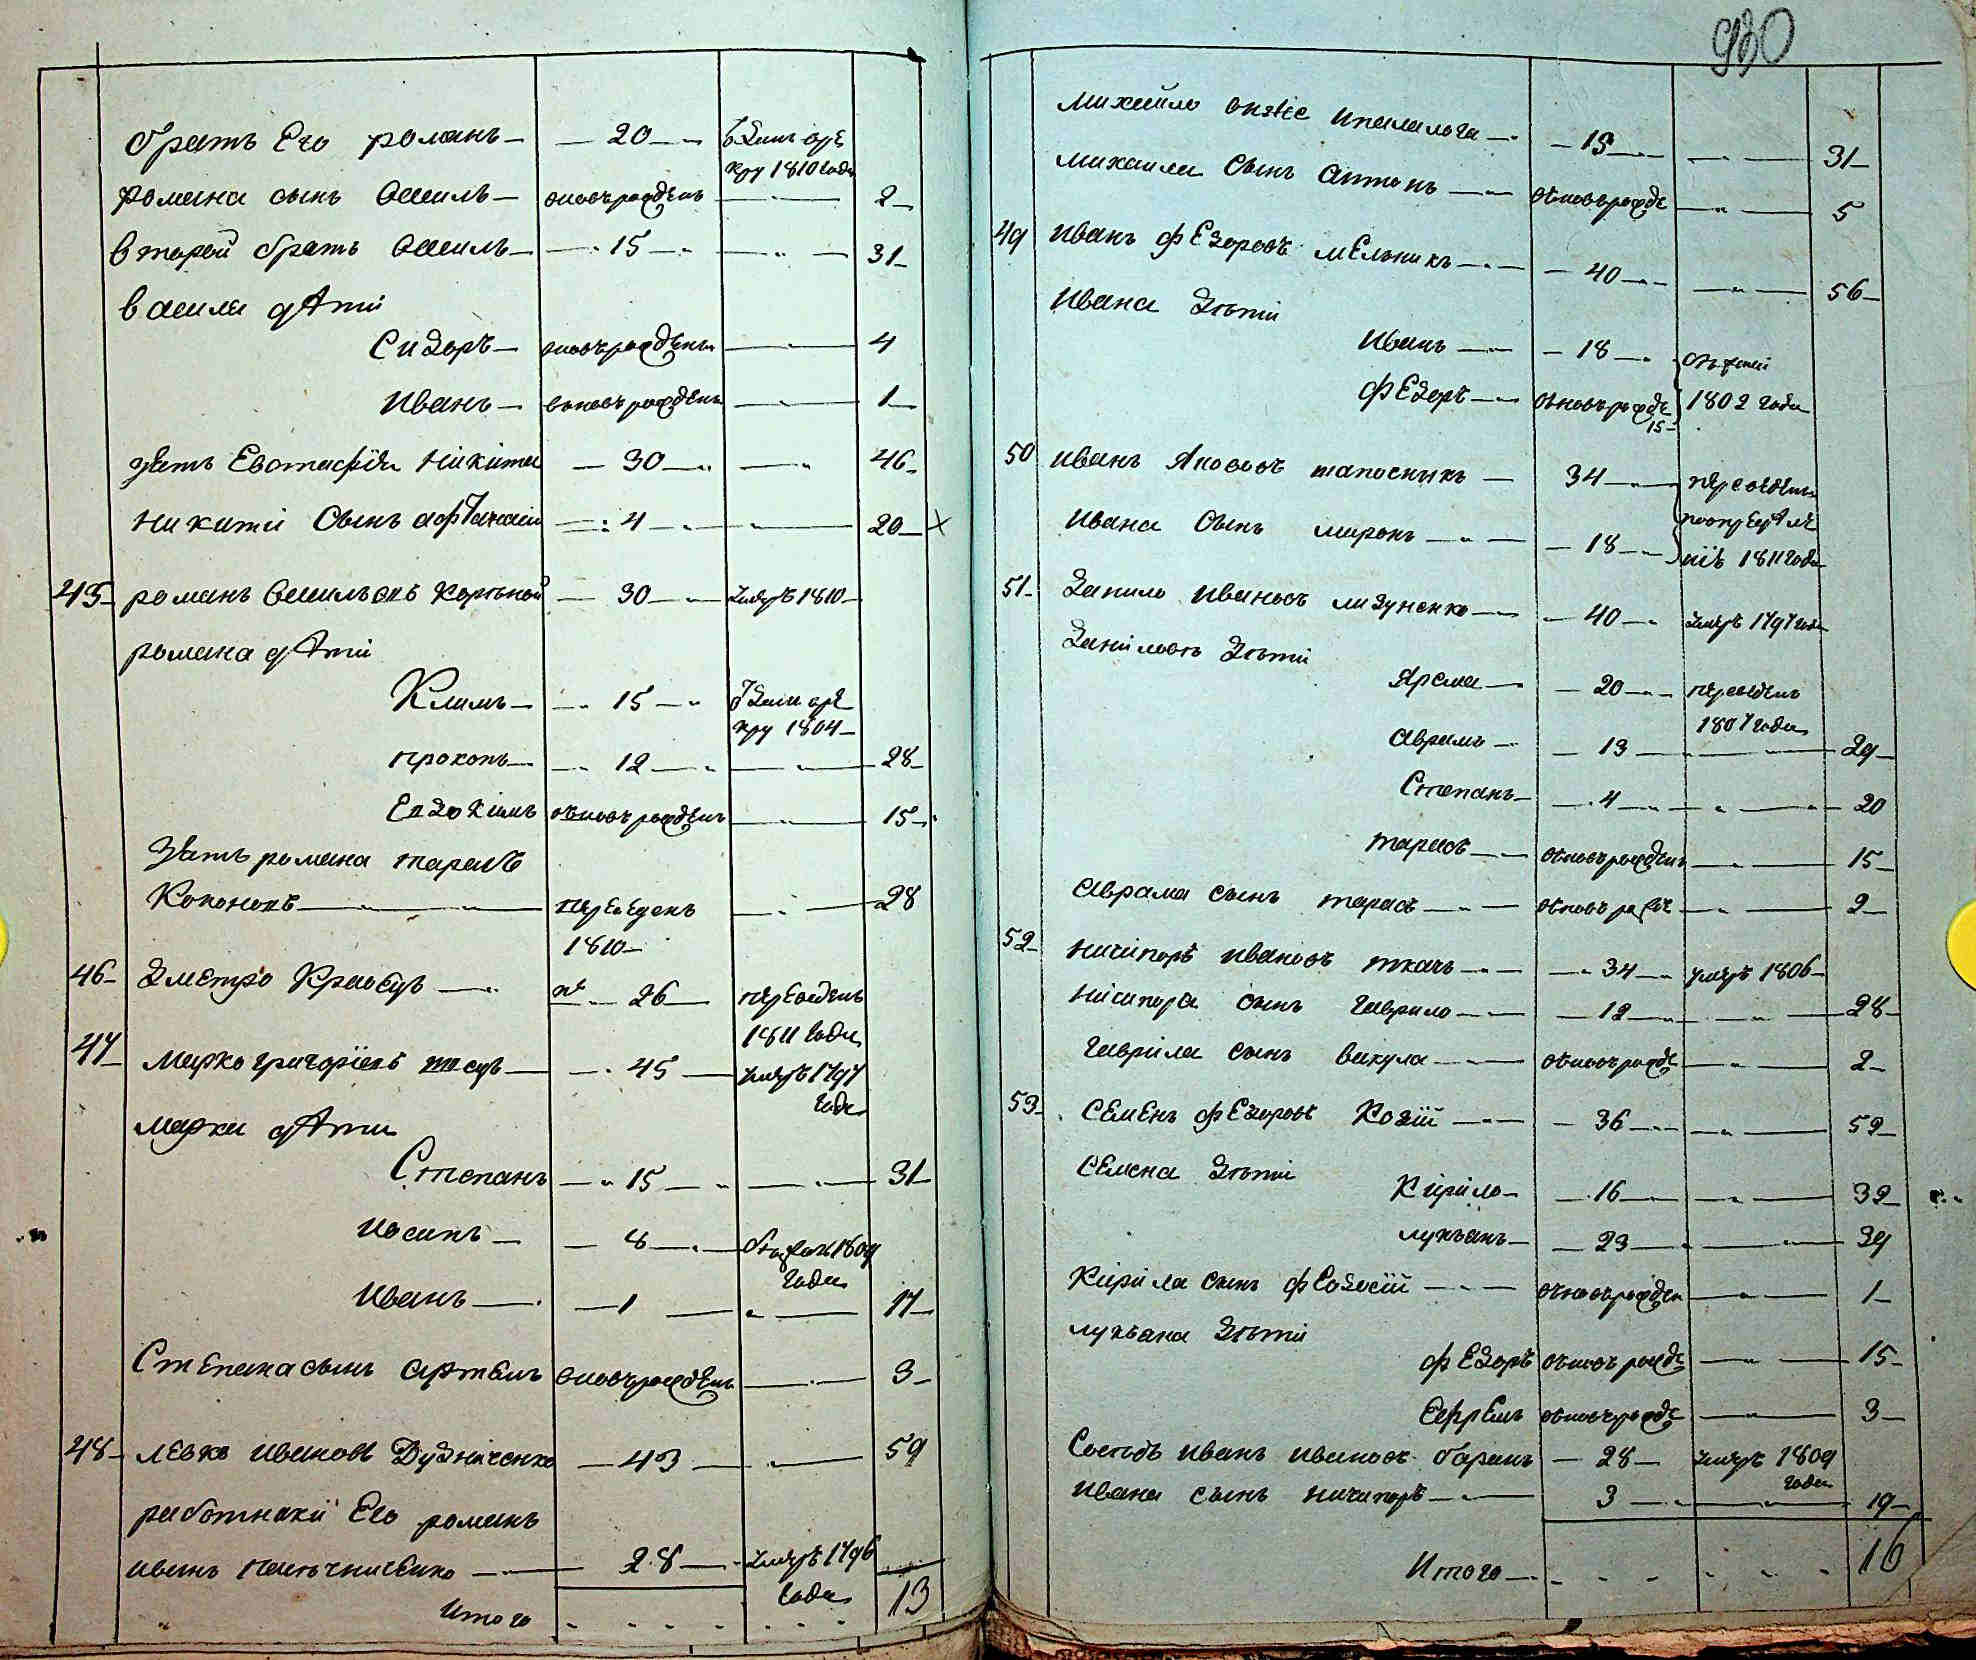 братъ Его романъ — 20 — взят въ ре
кру 1810 года
романа сынъ василь — вновъ рожденъ — 2
второй братъ василь — 15 — 31
василя дѣти
Сидоръ — вновъ рожденъ — 4
Иванъ — вновъ рожденъ — 1
зять Никита — 30 — 46
Никити Сынъ — 4 — 20 ×
45 романъ васильевъ — 30 — умеръ 1810
романа дѣти
Климъ — 15 — взят въ ре
кру 1804
прокопъ — 12 — 28
Евдокимъ вновъ рожденъ — 15
зять романа тарасъ
Кононовъ — переведенъ — 28
1810
46 Дмитро — 26 — переведенъ
1811 года
47 Марко григорїевъ — 45 — умеръ 1797
года
марки дѣти
Степанъ — 15 — 31
Иосипъ — 8 — 1809
года
Иванъ — 1 — 17
Степана сынъ артемъ вновъ рожденъ — 3
48 левко ивановъ Дудниченко — 43 — 59
работники Его романъ
иванъ — 28 — умеръ 1796
года
Итого 13
930
михайло — 15 — 31
михайла Сынъ антонъ — вновъ рожде — 5
49 Иванъ фЕдоровъ мЕльникъ — 40 — 56
Ивана дѣти
Иванъ — 18 —
фЕдоръ — вновъ рожде 1802 года
15
50 иванъ Якововъ — 34 — переведены
Ивана Сынъ миронъ — 18 — 1811 года
51 Данило Ивановъ лизуненко — 40 — умеръ 1797 года
Данїловы дѣти
Ярема — 20 — переведенъ
1807 года
аврамъ — 13 — 29
Степанъ — 4 — 20
тарасъ — вновъ рожденъ — 15
аврама сынъ тарасъ — вновъ рожде — 2
52 Ничипоръ ивановъ ткачъ — 34 — умеръ 1806
Ничипора сынъ гаврило — 12 — 28
гаврїла сынъ вакула — вновъ рожде — 2
53 СЕмЕнъ фЕдоровъ Козїй — 36 — 52
СЕмена дѣти
Кирїло — 16 — 32
лукъянъ — 23 — 39
Кирїла сынъ фЕодосїй — вновъ рожден — 1
лукъяна дѣти
фЕдоръ вновъ рожде — 15
Ефремъ вновъ рожде — 3
Соседъ иванъ ивановъ баранъ — 28 — умеръ 1809
года
ивана сынъ ничипоръ — 3 — 19
Итого — 16